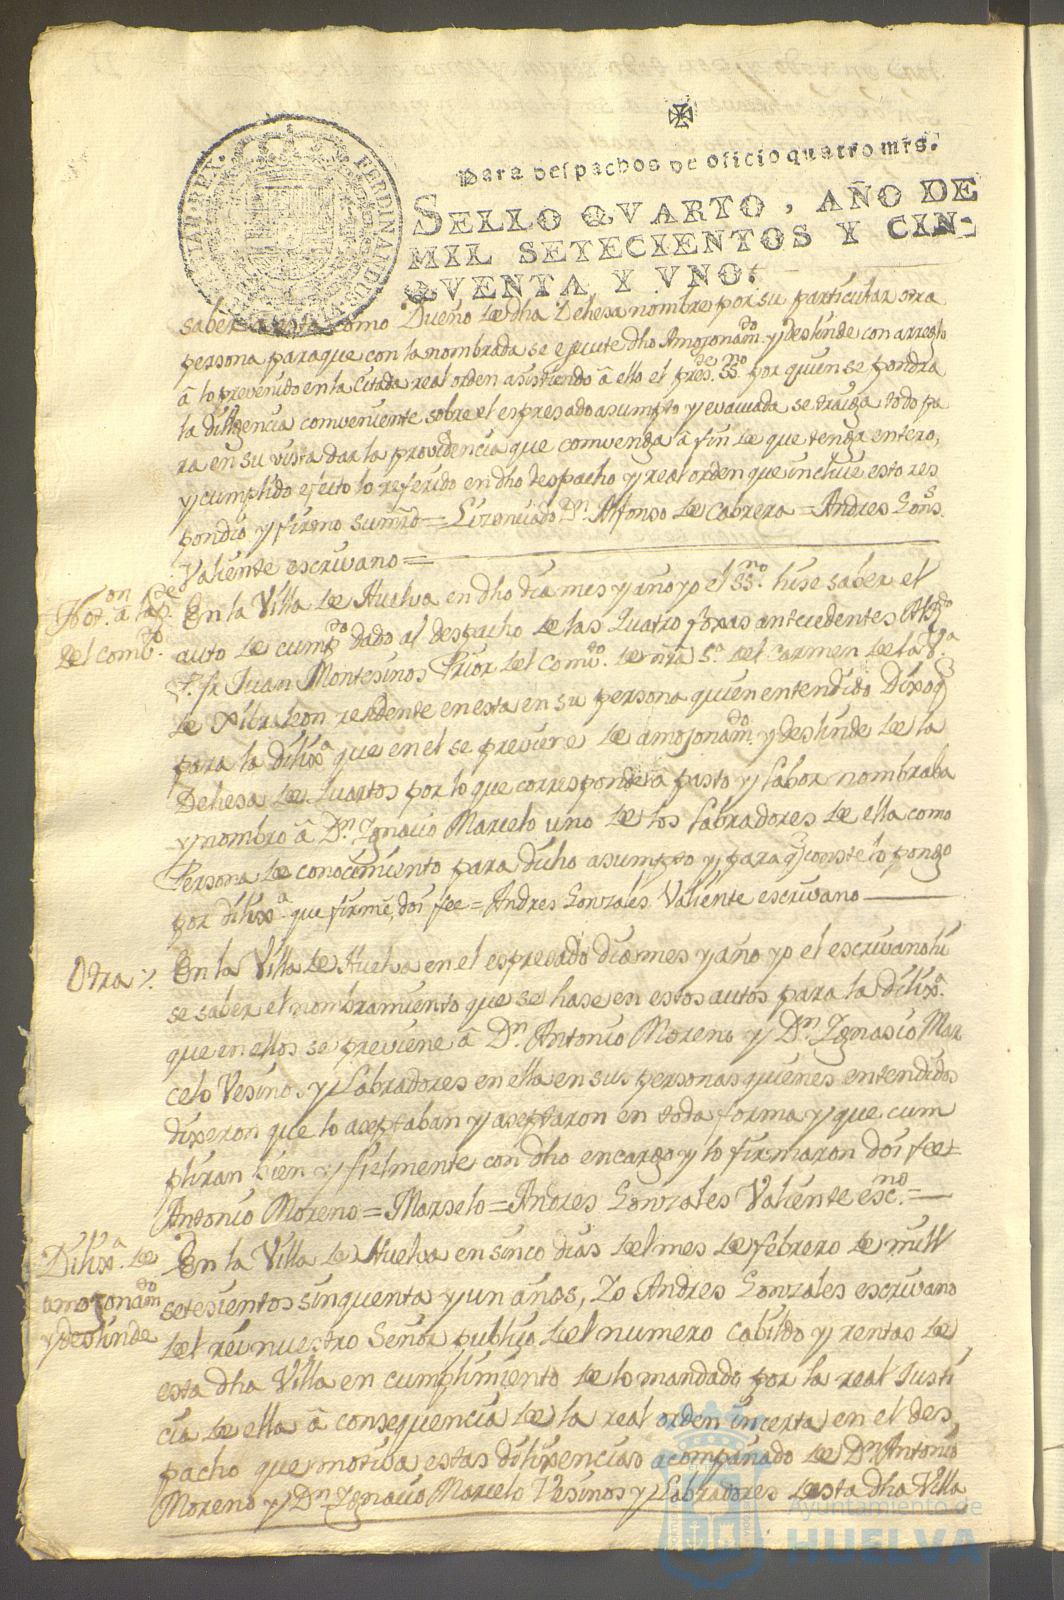 Para despachos de oficio quatro mrs.
SELLO QVARTO, AÑO DE
MIL SETECIENTOS Y CIN-
QVENTA Y VNO.
FERDINANDUS
HISPANIAR. REX.
saber a esta como Dueño de dha Dehesa nombre por su particular otra
persona para que con la nombrada se ejecute dho Amojonamto. y deslinde con arreglo
â lo prevenido en la citada real orden asistiendo â ello el preste. ssno. por quien se pondra
la dilixencia conveniente sobre el espresado asumpto y evacuada se traiga todo pa
ra en su vista dar la providencia que convenga â fin de que tenga entero,
y cumplido efecto lo referido en dho despacho y real orden que incluie esto res
pondio y firmo su mrd = Lizenciado Dn. Alfonso de Cabrera = Andres Gons.
Valiente escrivano =
Noton. a la pte
del combto.
En la Villa de Huelva en dho dia mes y año yo el ssno. hise saber el
auto de cumpto dado al despacho de las quatro foxas antecedentes Al Rdo
P. fr. Juan Montesinos Prior del comto. de nra Sa. del Carmen de la Va.
de Xibraleon residente en esta en su persona quien entendido Dixo q
para la dilixa. que en el se previene de amojonamto. y deslinde de la
Dehesa de Quartos por lo que corresponde â pasto y labor nombraba
y nombro â Dn. Ygnacio Marcelo uno de los labradores de ella como
Persona de conocimiento para dicho asumpto y para q conste lo pongo
por dilixa. que firme, doi fee = Andres Gonzales Valiente escrivano
Otra
En la Villa de Huelva en el espresado dia mes y año yo el escrivano hi
se saber el nombramiento que se hase en estos autos para la dilixa.
que en ellos se previene â Dn. Antonio Moreno y Dn. Ygnasio Mar
celo Vesinos y Labradores en ella en sus personas quienes entendidos
dixeron que lo aseptaban y aseptaron en toda forma y que cum
pliran bien y fielmente con dho encargo y lo firmaron doi fee =
Antonio Moreno = Marselo = Andres Gonzales Valiente escno. =
Dilixa. de
amojonamto
y deslinde
En la Villa de Huelva en sinco dias del mes de febrero de mill
setesientos sinquenta y un años, Yo Andres Gonzales escrivano
del rei nuestro Señor publico del numero cabildo y rentas de
esta dha Villa en cumplimiento de lo mandado por la real Justi
cia de ella â consequencia de la real orden incerta en el des
pacho que motiva estas dilixencias acompañado de Dn. Antonio
Moreno y Dn. Ygnacio Marcelo Vesinos y Labradores de esta dha Villa
Ayuntamiento de
HUELVA